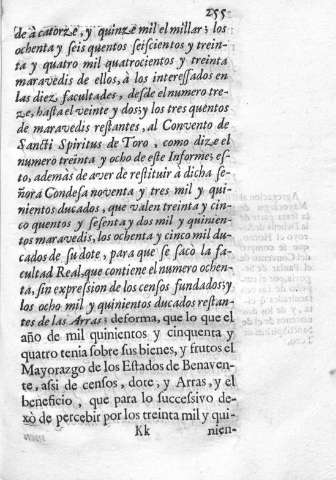 255
de à catorze, y quinze mil el millar; los
ochenta y seis quentos seiscientos y trein-
ta y quatro mil quatrocientos y treinta
maravedis de ellos, à los interessados en
las diez facultades, desde el numero tre-
ze, hasta el veinte y dos; y los tres quentos
de maravedis restantes, al Convento de
Sancti Spiritus de Toro, como dize el
numero treinta y ocho de este Informe; es-
to, además de aver de restituir à dicha se-
ñora Condesa noventa y tres mil y qui-
nientos ducados, que valen treinta y cin-
co quentos y sesenta y dos mil y quinien-
tos maravedis, los ochenta y cinco mil du-
cados de su dote, para que se sacò la fa-
cultad Real, que contiene el numero ochen-
ta, sin expression de los censos fundados; y
los ocho mil y quinientos ducados restan-
tes de las Arras; deforma, que lo que el
año de mil quinientos y cinquenta y
quatro tenia sobre sus bienes, y frutos el
Mayorazgo de los Estados de Benaven-
te, assi de censos, dote, y Arras, y el
beneficio, que para lo successivo de-
xò de percebir por los treinta mil y qui-
Kk nien-